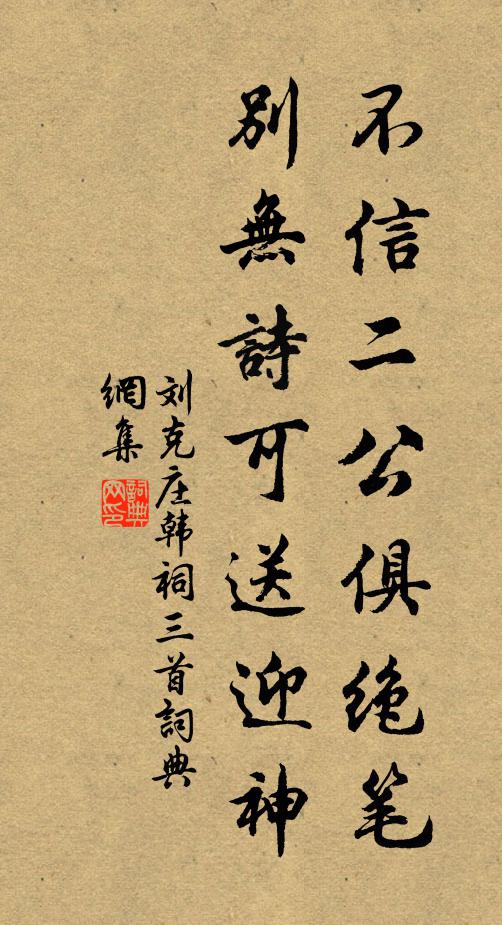 不信二公俱绝笔
別無詩可送迎神
刘克庄韩祠三首詞典
網集
詞典
网印